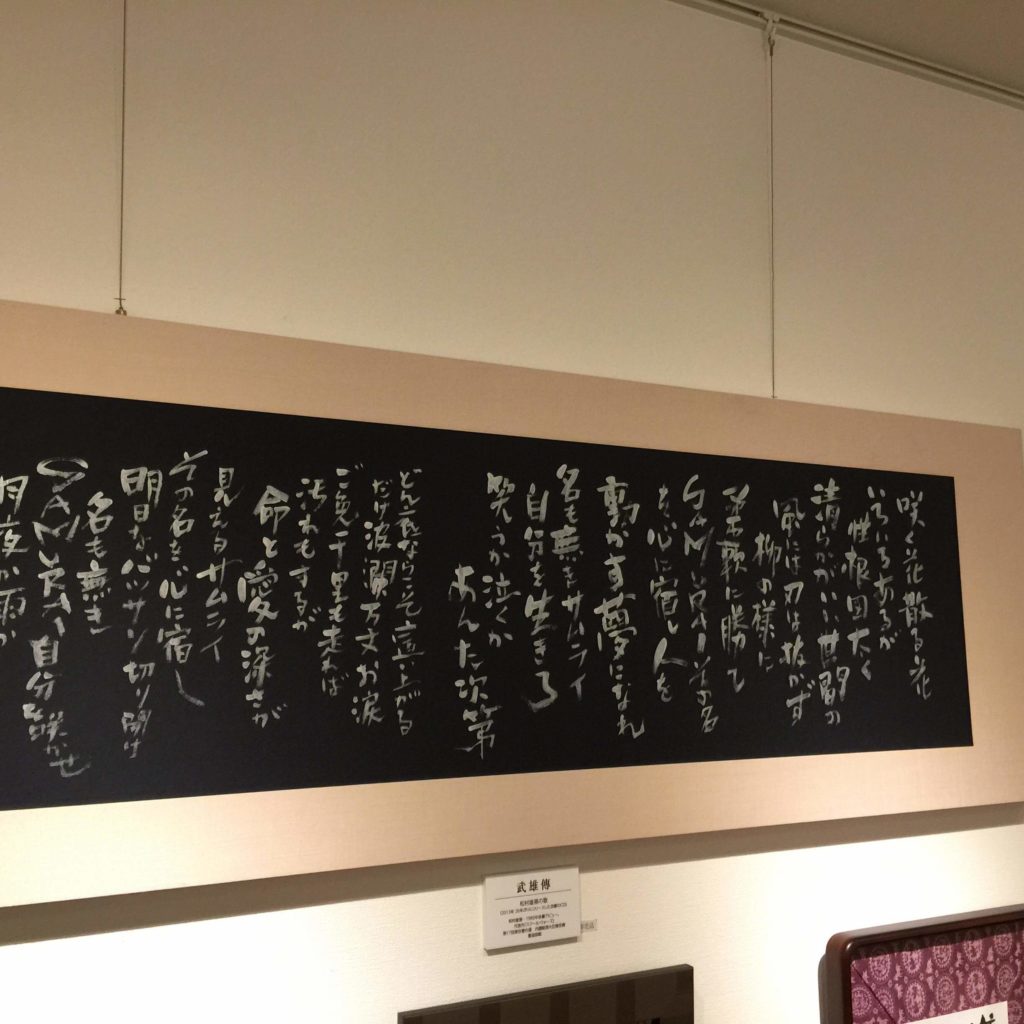 咲く花散る花
いろいろあるが
性根図太く
清らがいい其闘の
風には刃は抜がず
柳の様に
柔軟に勝て
SAMURAIその名
を心に宿し人を
動かす夢になれ
名も無きサムライ
自分を生きろ
笑うか泣くか
あんた次第
どん底ならこそ立ち上がる
だけ波瀾万丈お涙
ご免千里も走れば
汚れもするが
命と愛の深さが
見えるサムライ
その名を心に宿し
明日をバッサリ切り開け
名も無き
SAMURAI自分咲かせ
月夜か雨か
武雄傳
松村雄基の歌